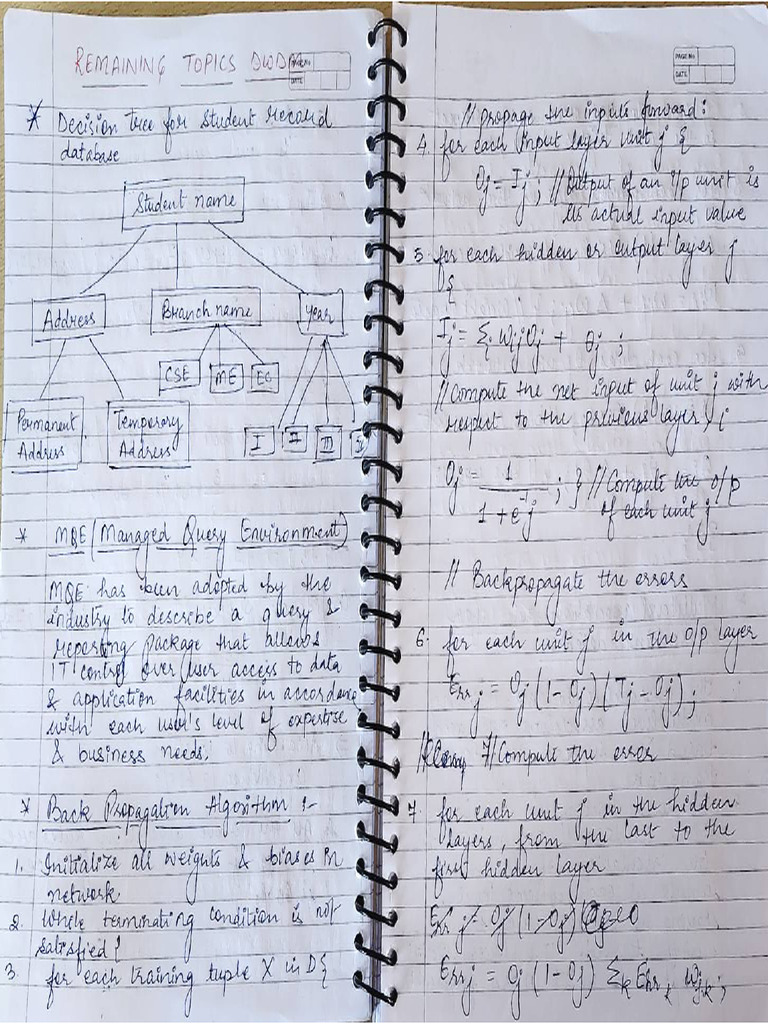 REMAINING TOPICS DWDM
PAGE No.
DATE
* Decision tree for student record
database
Student name
Address
Branch name
Year
CSE
ME
EC
Permanent
Address
Temporary
Address
I
II
III
* MQE (Managed Query Environment)
MQE has been adopted by the
industry to describe a query &
reporting package that allows
IT control over user access to data
& application facilities in accordance
with each user's level of expertise
& business needs.
* Back Propagation Algorithm :-
1. Initialize all weights & biases in
network
2. While terminating condition is not
satisfied {
3. for each training tuple X in D {
PAGE No.
DATE
// propage the inputs forward:
4. for each input layer unit j {
Oj = Ij ; // Output of an i/p unit is
its actual input value
5. for each hidden or output layer j
{
Ij = Σi wij Oj + θj ;
// Compute the net input of unit j with
respect to the previous layer, i
Oj = 1 / 1 + e^-Ij ; } // Compute the o/p
of each unit j
// Backpropagate the errors
6. for each unit j in the o/p layer
Errj = Oj (1 - Oj) (Tj - Oj) ;
// Compute the error
7. for each unit j in the hidden
layers, from the last to the
first hidden layer
Errj = Oj (1 - Oj)
Errj = Oj (1 - Oj) Σk Errk wjk ;